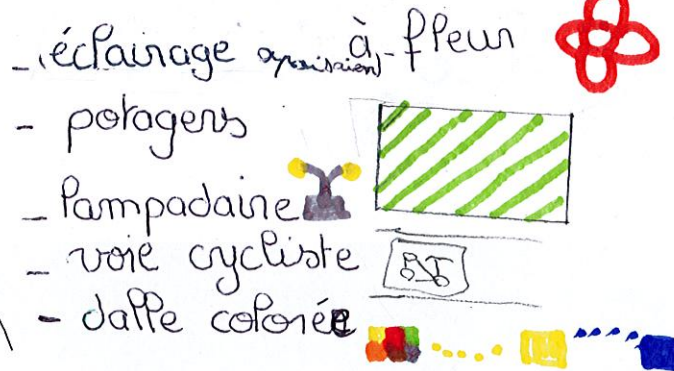 - éclairage à fleur
- potagers
- lampadaire
- voie cycliste
- dalle colorée